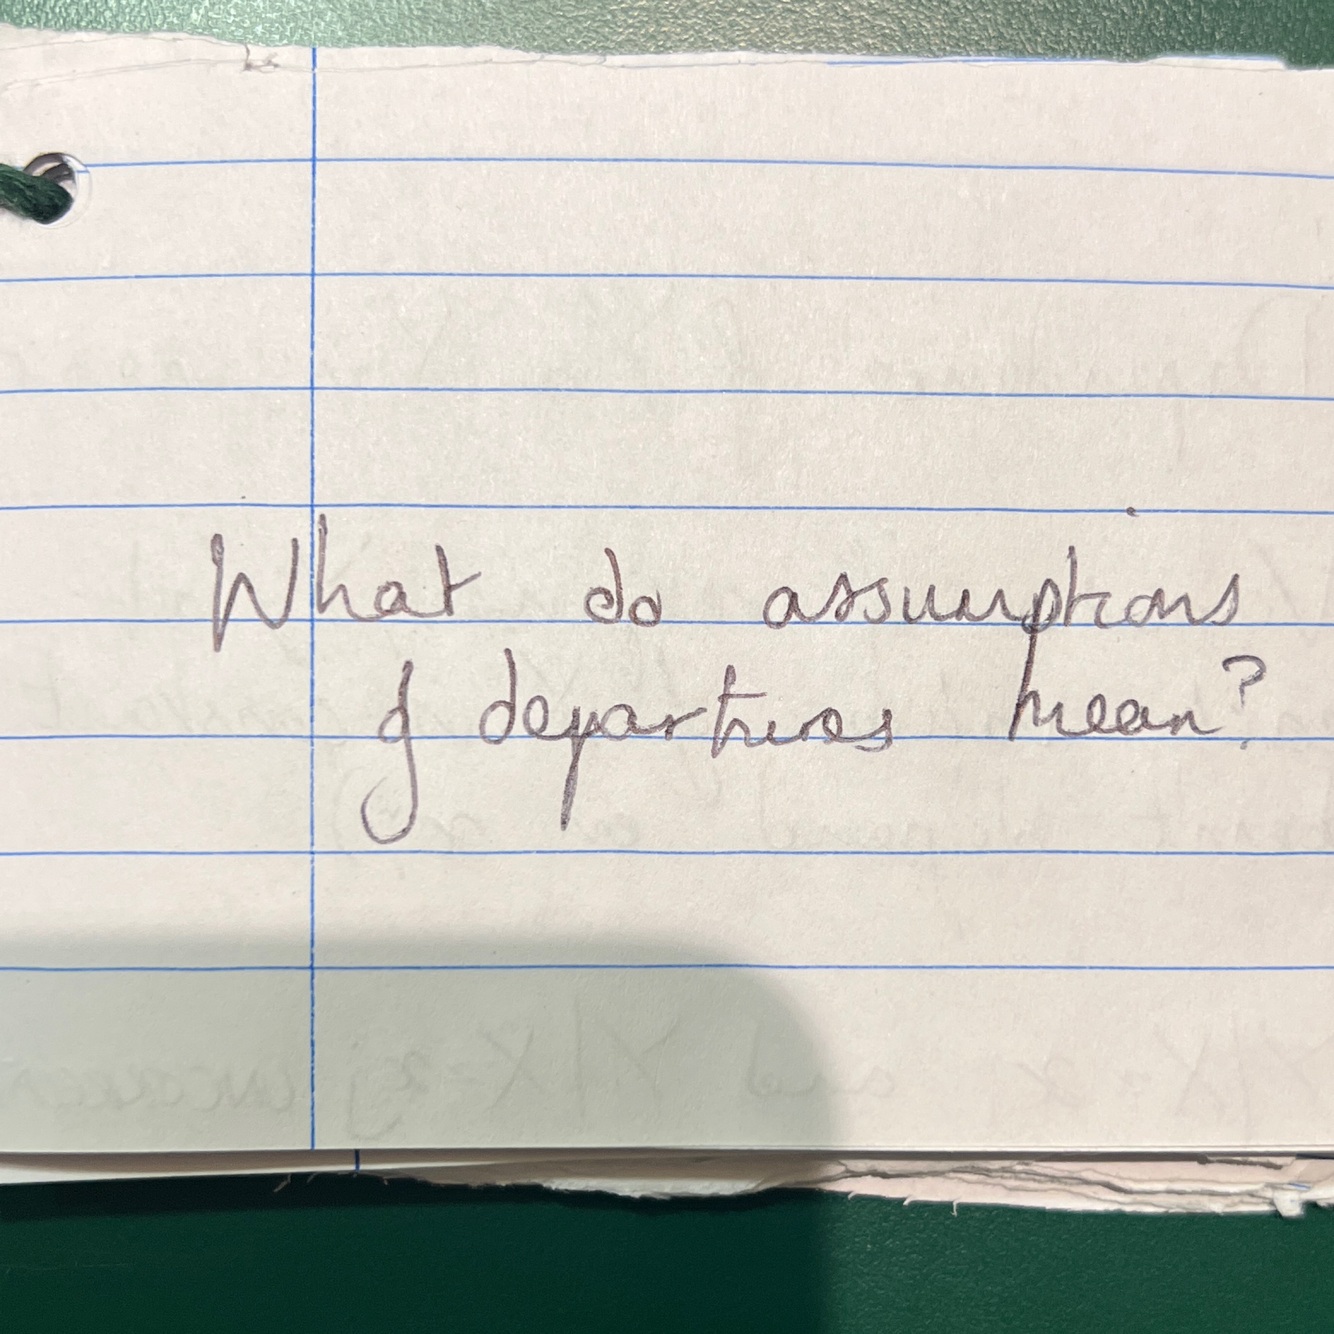 What do assumptions
of departures mean?